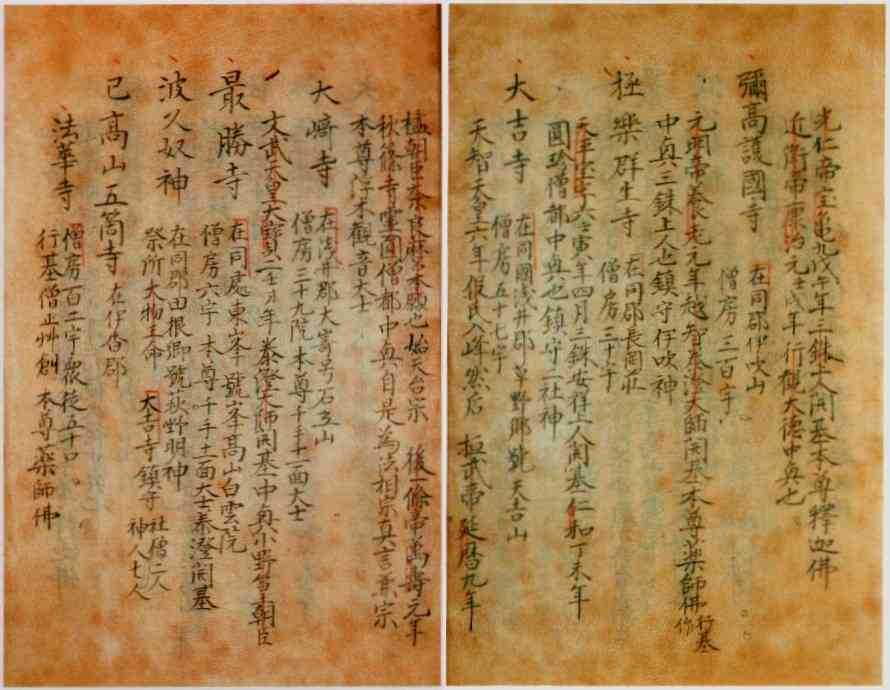 光仁帝宝亀九戊午年三銖上人開基本尊釋迦佛
近衛帝康治元壬戌年行観大徳中興也
彌高護國寺 在同郡伊吹山
僧房三百宇
元明帝養老元年越智泰澄大師開基本尊薬師佛行基作
中興三銖上人也鎮守伊吹神
極樂群生寺 在同郡長岡庄
僧房三十宇
天平宝字六壬寅年四月三銖安祥上人開基仁和丁未年
圓珎僧都中興也鎮守二社神
大吉寺 在同國浅井郡草野郷號天吉山
僧房五十七宇
天智天皇六年役氏入峰然后 桓武帝延暦九年
橘朝臣奈良麻呂本願也始天台宗 後一條帝萬壽元年
秋篠寺霊圓僧都中興自是為法相宗真言兼宗
本尊浮木觀音大士
大﨑寺 在浅井郡大嵜号石立山
僧房三十九院本尊千手十一面大士
文武天皇大寶二壬寅年泰澄大師開基中興小野篁朝臣
最勝寺 在同處東峯號峯高山白雲院
僧房六宇 本尊千手十一面大士泰澄開基
波久奴神 在同郡田根郷號萩野明神
祭所大物主命 大吉寺鎮守 社僧二人 神人七人
已高山五箇寺 在伊香郡
法華寺 僧房百二宇衆徒五十口
行基僧正艸創 本尊薬師佛